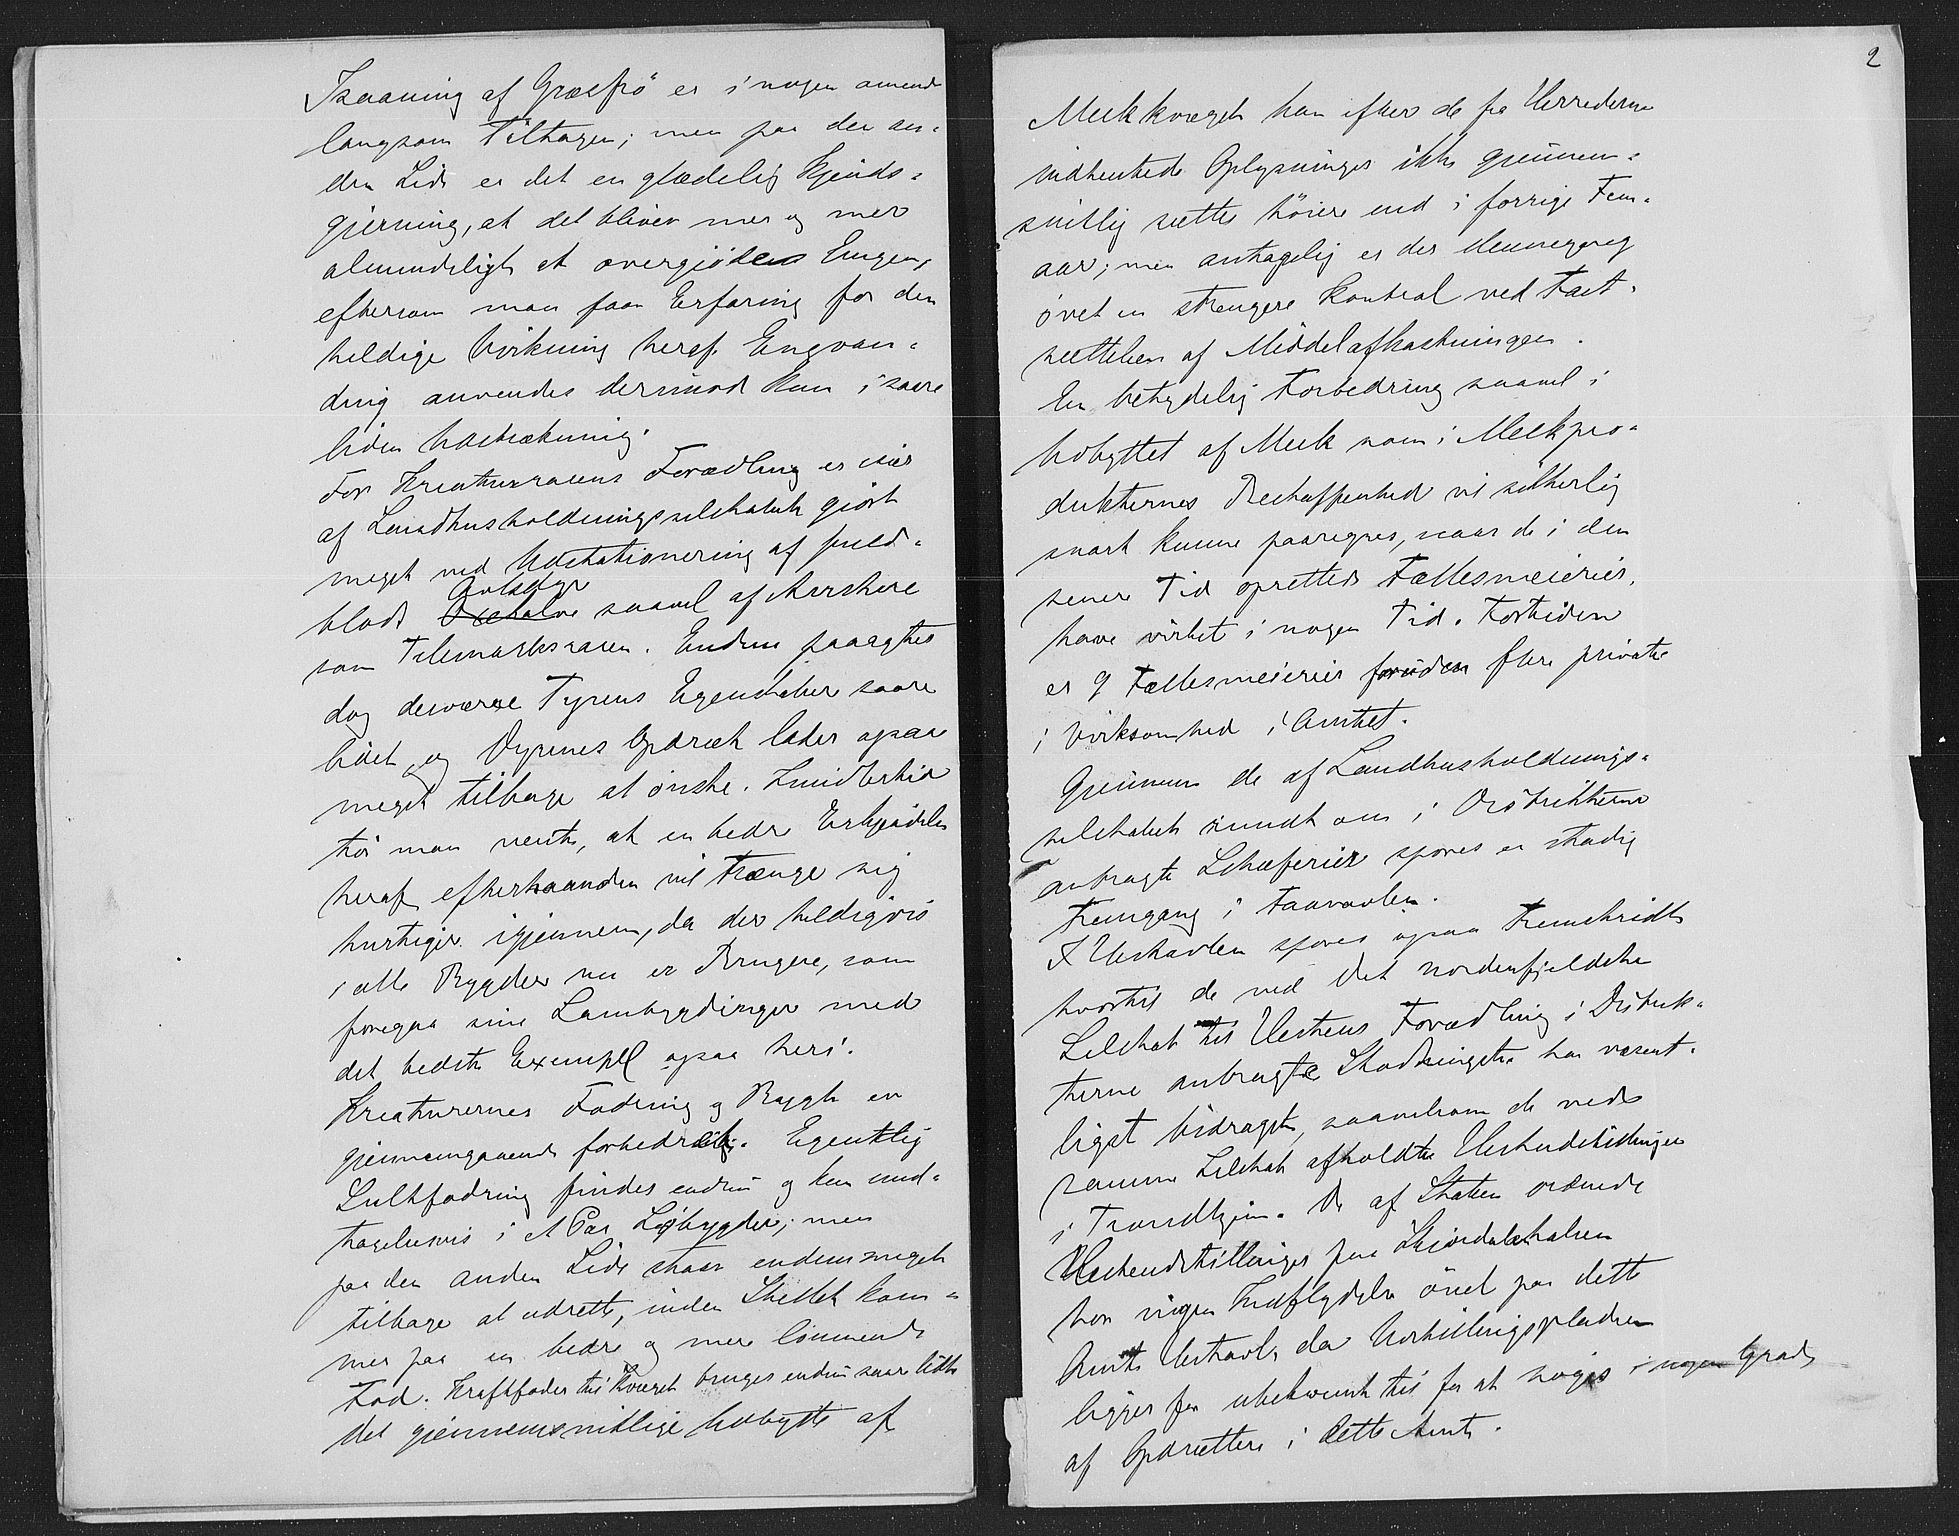 Isaaning af Græsfrö er i nogen omend
langsom Tiltagen; men paa den an-
den Side er det en glædelig Kjends-
gjerning, at det bliver mer og mer
almindeligt at overgjödes Engen,
eftersom man faar Erfaring for den
heldige Virkning heraf. Engvan-
ding anvendes derimod kun i saare
liden Udstrækning.
For Kreaturracens Forædling er især
af Landhusholdningsselskabet gjört
meget ved Udstationering af fuld-
Avlsdyr
blods Oxekalve saavel af Ayrshire
som Telemarksracen. Endnu paaagtes
dog desværre Tyrens Egenskaber saare
lidet, og Dyrenes Opdræt lader ogsaa
meget tilbage at önske. Imidlertid
tör man vente, at en bedre Erkjendelse
heraf efterhaanden vil trænge sig
hurtigere igjennem, da der heldigvis
i alle Bygder nu er Brugere, som
foregaa sine Sambygdinger med
det bedste Exempel ogsaa heri.
Kreaturernes Fodring og Rögt er
gjennemgaaende forbedret. Egentlig
Sultfodring findes endnu og kun und-
tagelsesvis i et Par Sjøbygder; men
paa den anden Side staar endnu meget
tilbage at udrette, inden Stellet kom-
mer paa en bedre og mere lönnende
Fod. Kraftfoder til Kvæget bruges endnu saare lidt.
Det gjennemsnitlige Udbytte af
2
Melkkvæget kan efter de fra Herrederne
indhentede Oplysninger ikke gjennem-
snitlig sættes höiere end i forrige Fem-
aar; men antagelig er der denne gang
övet en strengere Kontrol ved Fast-
sættelsen af Middelafkastningen.
En betydelig Forbedring saavel i
Udbyttet af Melk som i Melkpro-
dukternes Beskaffenhed vil sikkerlig
snart kunne paaregnes, naar de i den
senere Tid oprettede Fællesmeierier
have virket i nogen Tid. Fortiden
er 9 Fællesmeierier foruden flere private
i Virksomhed i Amtet.
Gjennem de af Landhusholdnings-
selskabet rundt om i Distrikterne
anbragte Schæferier spores en stadig
Fremgang i Faaravlen.
I Hesteavlen spores ogsaa Fremskridt
hvortil de ved det nordenfjeldske
Selskab til Hestens Forædling i Distrik-
terne anbragte Stodhingste har væsent-
ligst bidraget, saavelsom de ved
samme Selskab afholdte Hesteudstillinger
i Trondhjem. De af Staten ordnede
Hesteudstillinger paa Stjördalshalsen
har ingen Indflydelse övet paa dette
Amts Hesteavl, da Udstillingspladsen
ligger for ubekvemt til for at söges i nogen Grad
af Opdrættere i dette Amt.